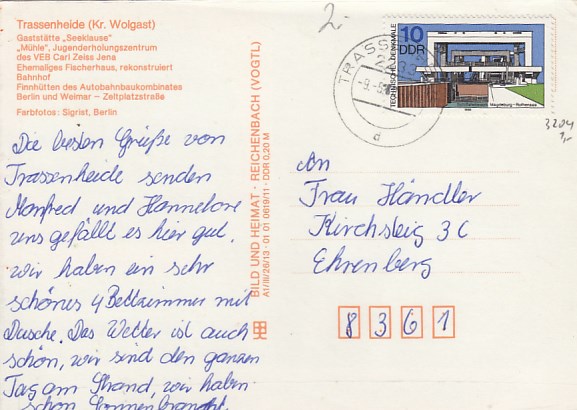 Trassenheide (Kr. Wolgast)
Gaststätte „Seeklause"
„Mühle", Jugenderholungszentrum
des VEB Carl Zeiss Jena
Ehemaliges Fischerhaus, rekonstruiert
Bahnhof
Finnhütten des Autobahnbaukombinates
Berlin und Weimar – Zeltplatzstraße
Farbfotos: Sigrist, Berlin
Die besten Grüße von
Trassenheide senden
Manfred und Hannelore
uns gefällt es hier gut,
wir haben ein sehr
schönes 4 Bettzimmer mit
Dusche. Das Wetter ist auch
schön, wir sind den ganzen
Tag am Strand, wir haben
schon Sonnenbrand.
BILD UND HEIMAT · REICHENBACH (VOGTL)
A1/III/26/13 · 01 01 0619/11 · DDR 0,20 M
2.-
TRASSE
-9.-5.
d
10
DDR
TECHNISCHE DENKMALE
Magdeburg-Rothensee
3204
1,-
An
Frau Händler
Kirchsteig 3c
Ehrenberg
8361